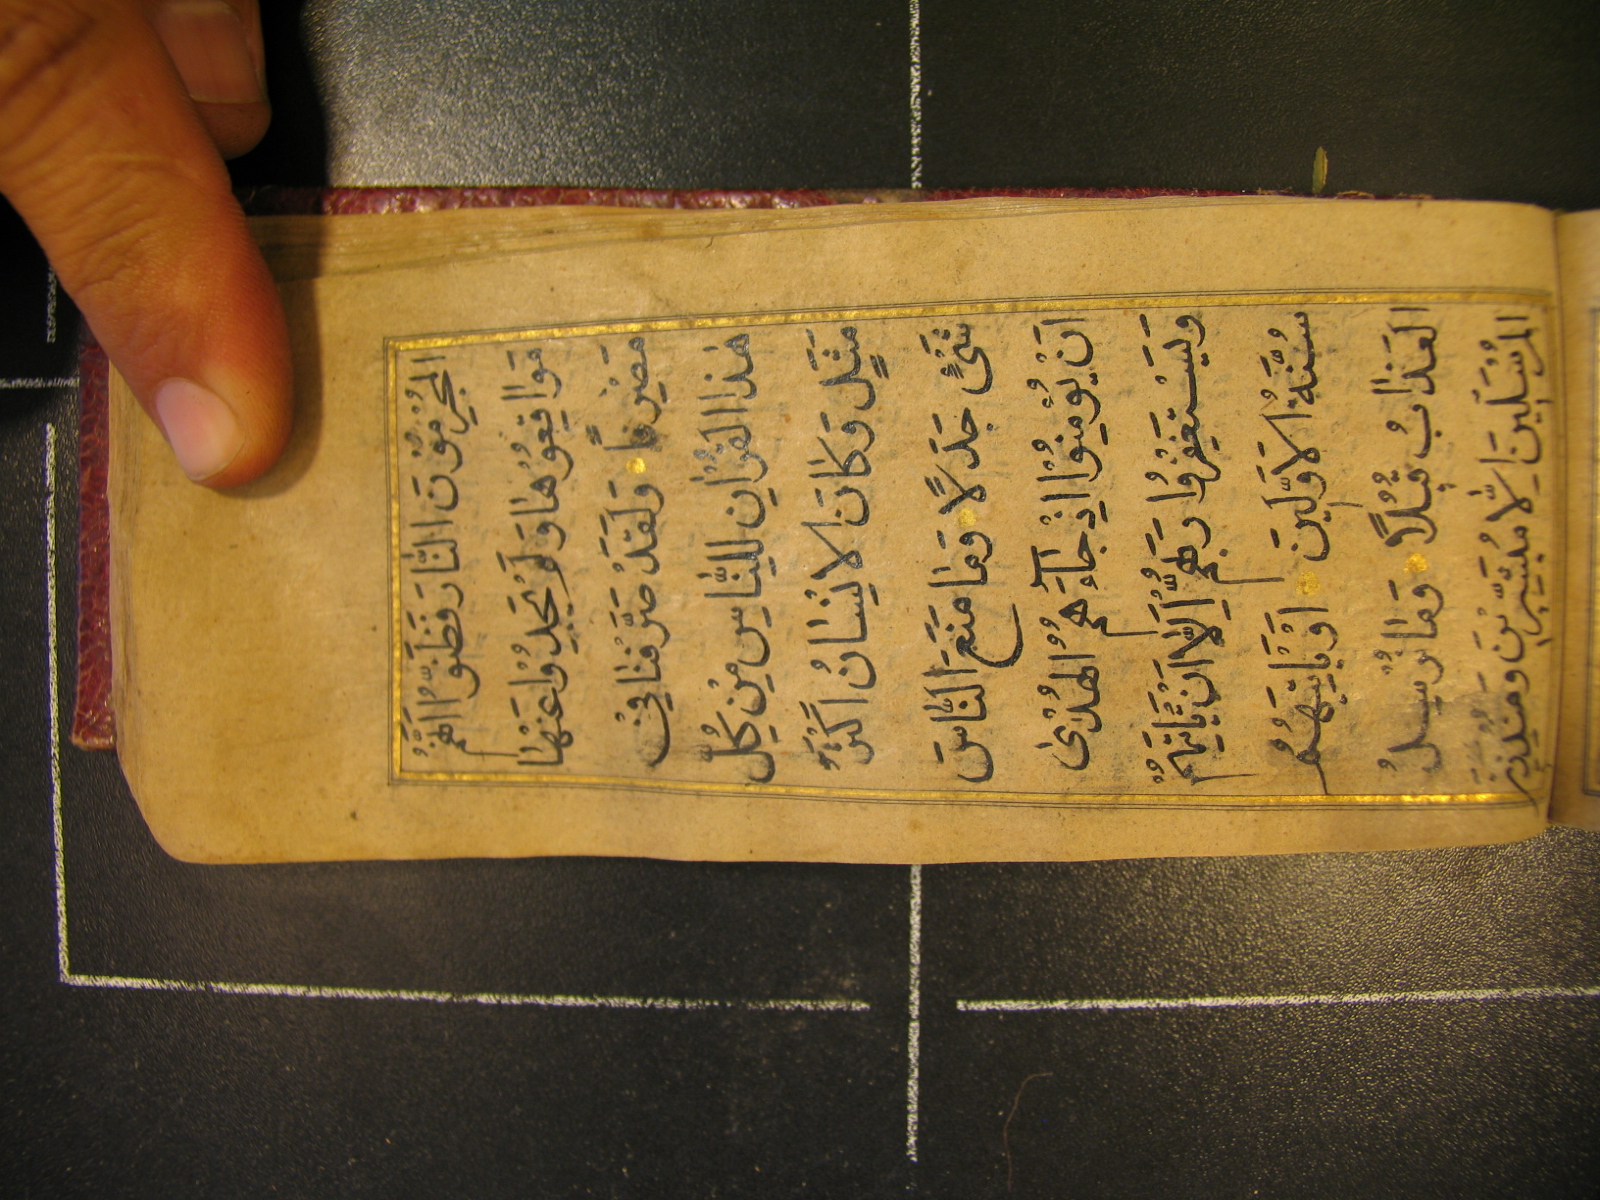 المُجْرِمُوْنَ النَّارَ فَظَنُّوْااَنَّهُمْ
مَوَاقِعُوْهَا وَلَمْ يَجِدُوْاعَنْهَا
مَصْرِفًا وَلَقَدْ صَرَّفْنَا فِىْ
هٰذَاالقُرْاٰنِ لِلنَّاسِ مِنْ كُلِّ
مَثَلٍ وَكَانَ الاِنْسَانُ اَكْثَرَ
شَىْءٍ جَدَلًا وَمَا مَنَعَ النَّاسَ
اَنْ يُؤْمِنُوْا اِذْجَاۤءَهُمُ الهُدٰى
وَيَسْتَغْفِرُوْا رَبَّهُمْ اِلَّااَنْ تَأْتِيَهُمْ
سُنَّةُ الاَوَّلِيْنَ اَوْيَأْتِيَهُمُ
العَذَابُ قُبُلًا وَمَا نُرْسِلُ
المُرْسَلِيْنَ اِلَّا مُبَشِّرِيْنَ وَمُنْذِرِيْنَ